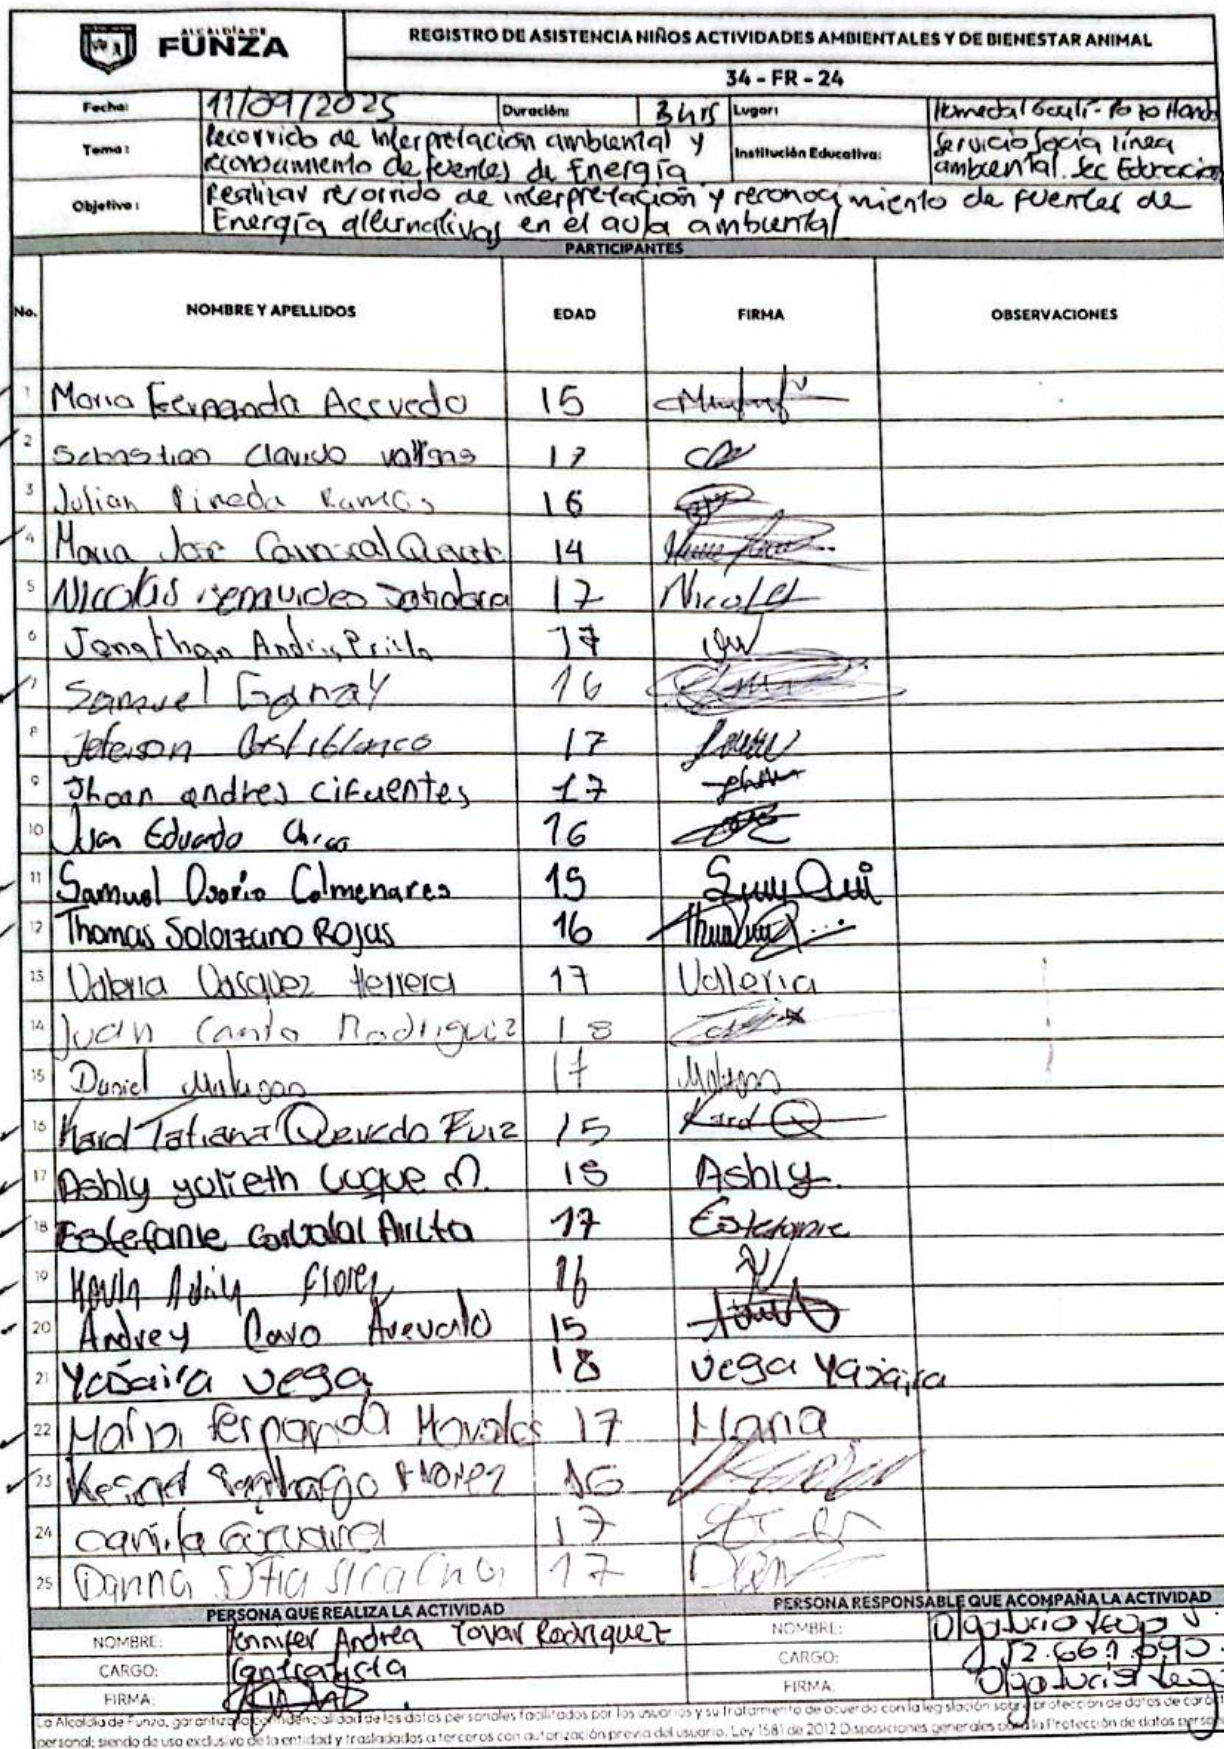 ALCALDÍA DE
FUNZA
REGISTRO DE ASISTENCIA NIÑOS ACTIVIDADES AMBIENTALES Y DE BIENESTAR ANIMAL
34 - FR - 24
Fecha: 11/09/2025 Duración: 3 hrs Lugar: Humedal Gualí - Pozo Hondo
Tema: Recorrido de interpretación ambiental y
reconocimiento de fuentes de Energía
Institución Educativa: Servicio Socia línea
ambiental. Sec Educación
Objetivo: Realizar recorrido de interpretación y reconocimiento de fuentes de
Energía alternativas en el aula ambiental
PARTICIPANTES
No. NOMBRE Y APELLIDOS EDAD FIRMA OBSERVACIONES
1 Maria Fernanda Acevedo 15
2 Sebastian Clavijo 17
3 Julian Pineda Ramos 16
4 Maria Jose 14
5 Nicolas 17 Nicolas
6 Jonathan Andres 17
7 Samuel Garay 16
8 Jeferson Castiblanco 17
9 Jhoan andres cifuentes 17
10 Juan Eduardo 16
11 Samuel Osorio Colmenares 15
12 Thomas Solorzano Rojas 16
13 Valeria Vasquez Herrera 17 Valleria
14 Juan Camilo Rodriguez 18
15 Daniel Malagon 17 Malagon
16 Karol Tatiana Quevedo Ruiz 15 Karol Q
17 Ashly yulieth Luque M. 15 Ashly.
18 Estefanie 17 Estefanie
19 Kevin Florez 16
20 Andrey Arevalo 15
21 Yasaira vega 18 vega Yasaira
22 Maria fernanda Morales 17 Maria
23 Santiago Florez 16
24 Camila 17
25 Danna Sofia 17
PERSONA QUE REALIZA LA ACTIVIDAD PERSONA RESPONSABLE QUE ACOMPAÑA LA ACTIVIDAD
NOMBRE: Jennifer Andrea Tovar Rodriguez NOMBRE: Olga Lucia Vega V.
CARGO: Contratista CARGO:
FIRMA: FIRMA: Olga Lucia Vega
La Alcaldía de Funza, garantiza la confidencialidad de los datos personales facilitados por los usuarios y su tratamiento de acuerdo con la legislación sobre protección de datos de carácter
personal; siendo de uso exclusivo de la entidad y trasladados a terceros con autorización previa del usuario. Ley 1581 de 2012 Disposiciones generales para la Protección de datos personales